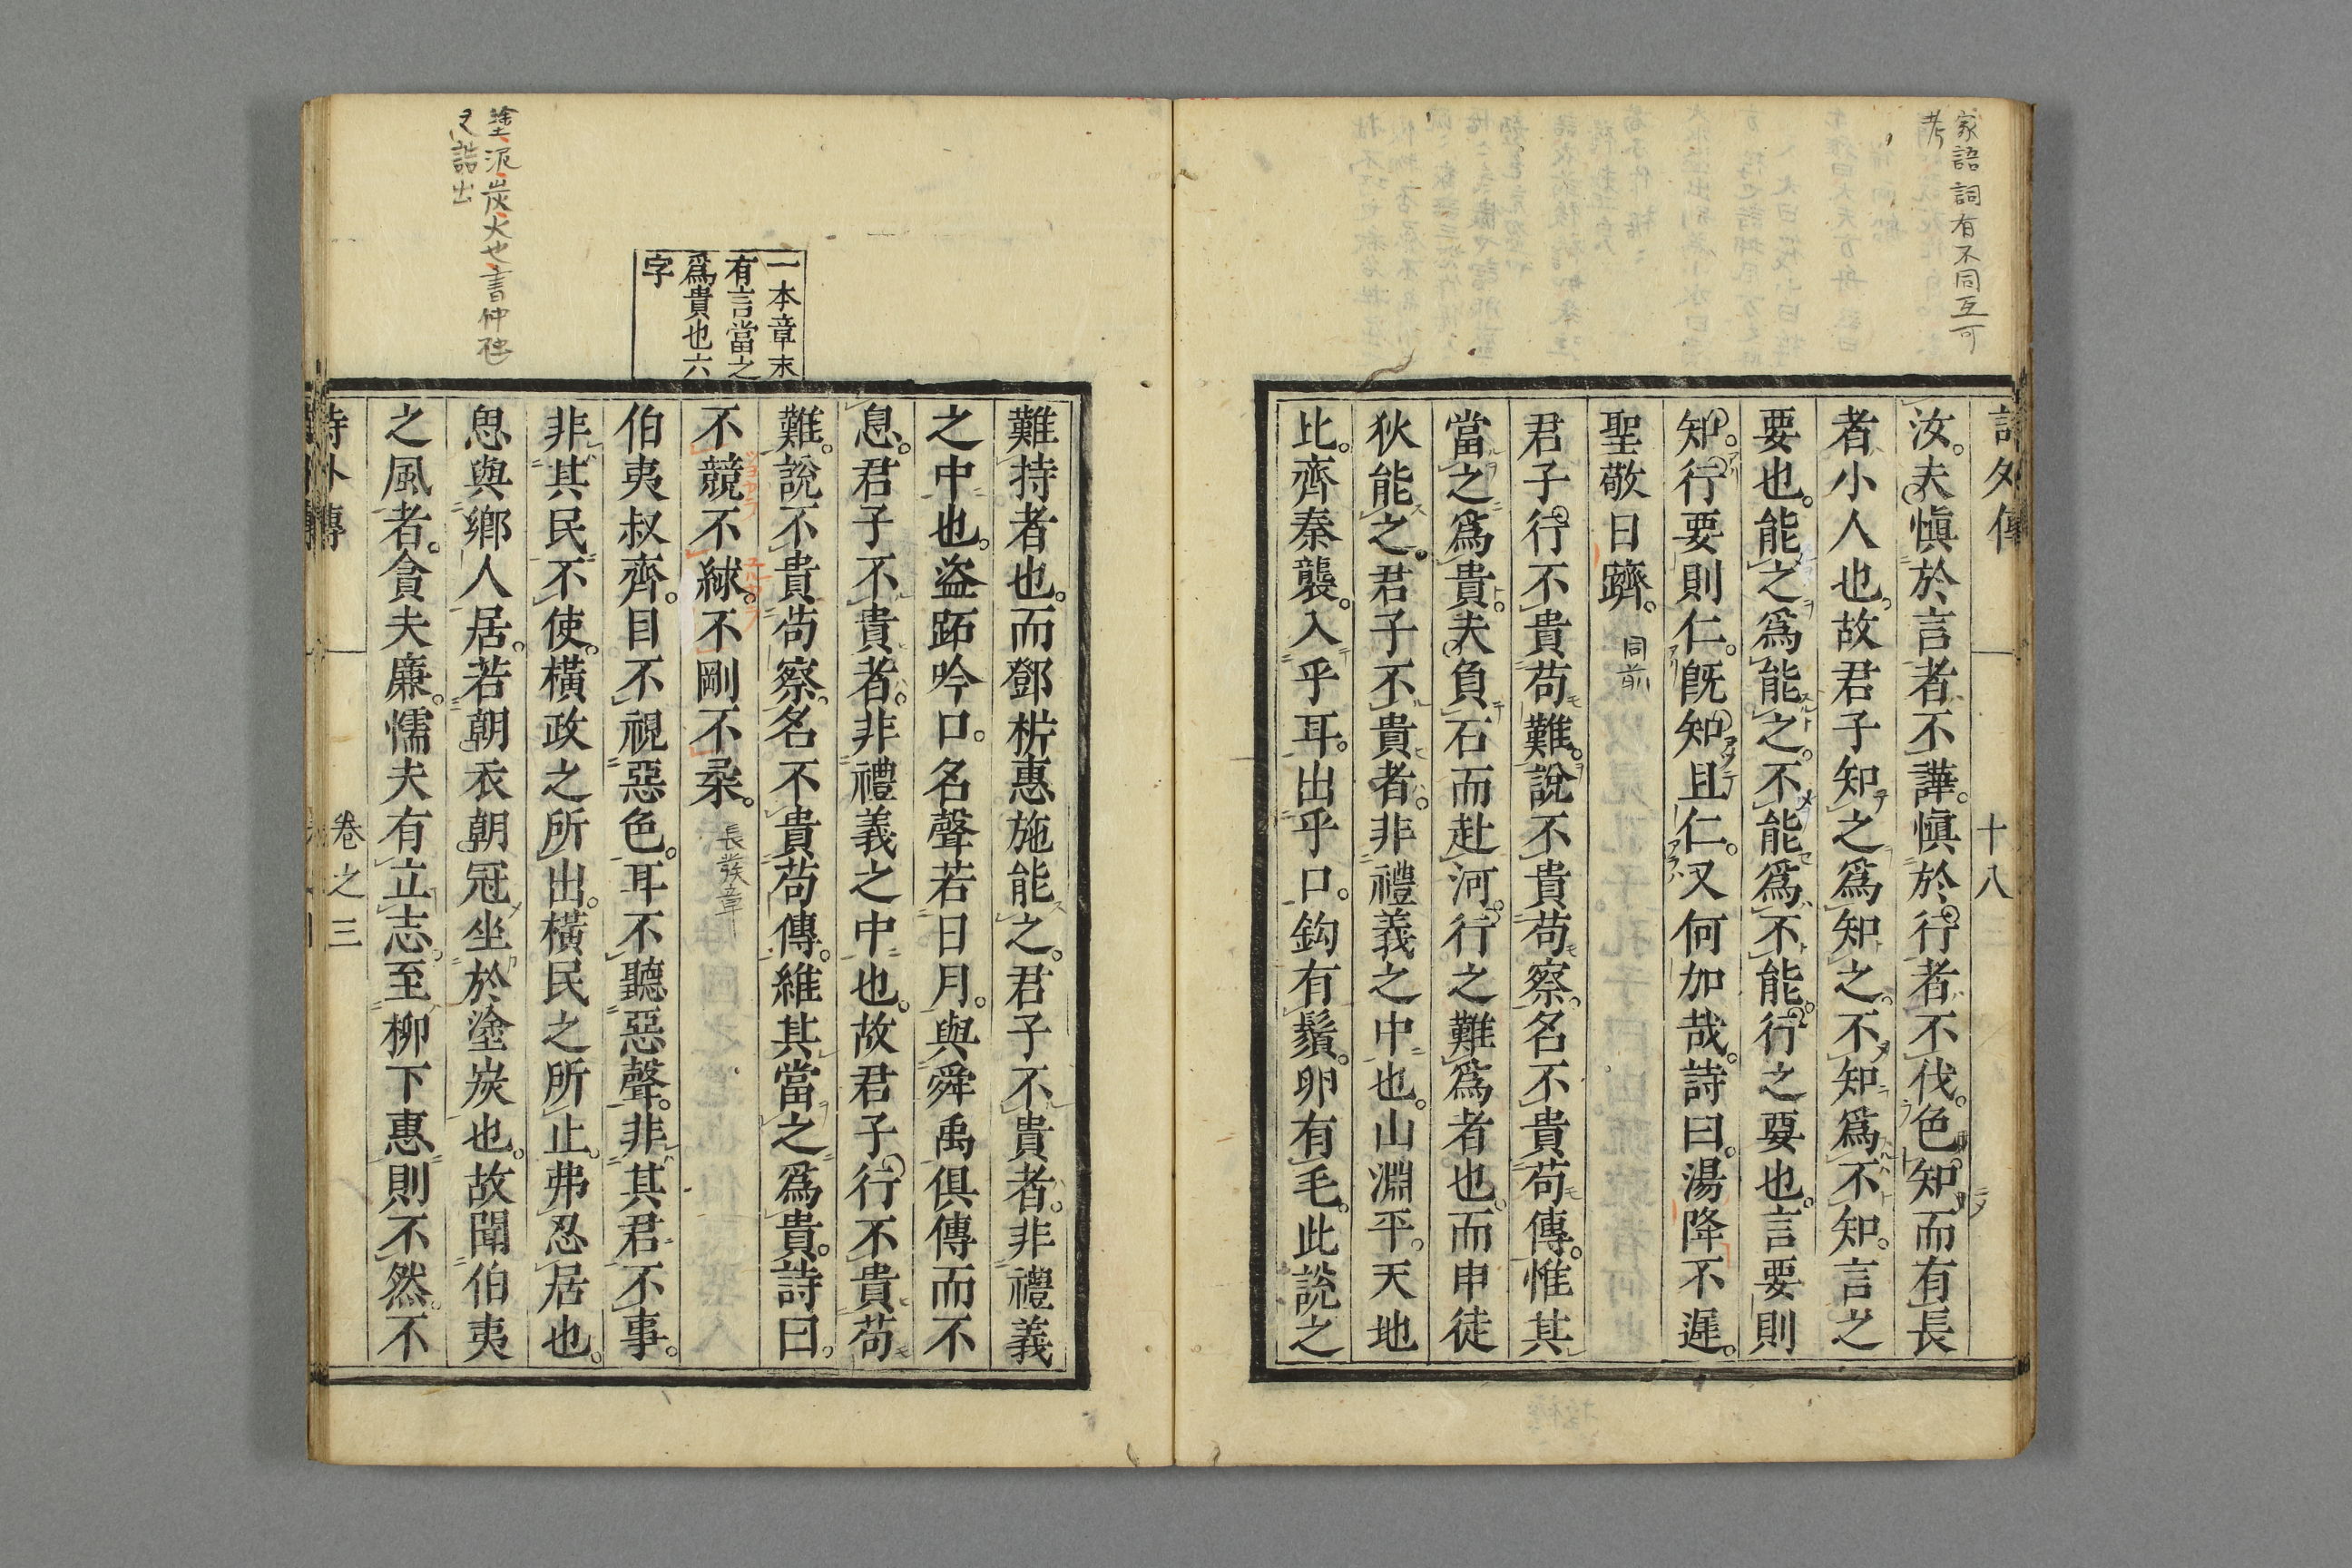 家語詞有不同互可
考
詩外傳 十八
汝。夫愼於言者不譁。愼於行者不伐。色知而有長
者小人也。故君子知之爲知之。不知爲不知。言之
要也。能之爲能之。不能爲不能。行之要也。言要則
知。行要則仁。旣知且仁。又何加哉。詩曰。湯降不遲。
聖敬日躋。同前
君子行不貴苟難。說不貴苟察。名不貴苟傳。惟其
當之爲貴。夫負石而赴河。行之難爲者也。而申徒
狄能之。君子不貴者。非禮義之中也。山淵平。天地
比。齊秦襲。入乎耳。出乎口。鈎有鬚。卵有毛。此說之
難持者也。而鄧析惠施能之。君子不貴者。非禮義
之中也。盜跖吟口。名聲若日月。與舜禹俱傳而不
息。君子不貴者。非禮義之中也。故君子行不貴苟
難。說不貴苟察。名不貴苟傳。維其當之爲貴。詩曰。
不競不絿。不剛不柔。長發章
伯夷叔齊。目不視惡色。耳不聽惡聲。非其君不事。
非其民不使。橫政之所出。橫民之所止。弗忍居也。
思與鄉人居。若朝衣朝冠坐於塗炭也。故聞伯夷
之風者。貪夫廉。懦夫有立志。至柳下惠則不然。不
詩外傳 卷之三
一本章末
有言當之
爲貴也六
字
塗泥炭火也書仲虺
之誥出